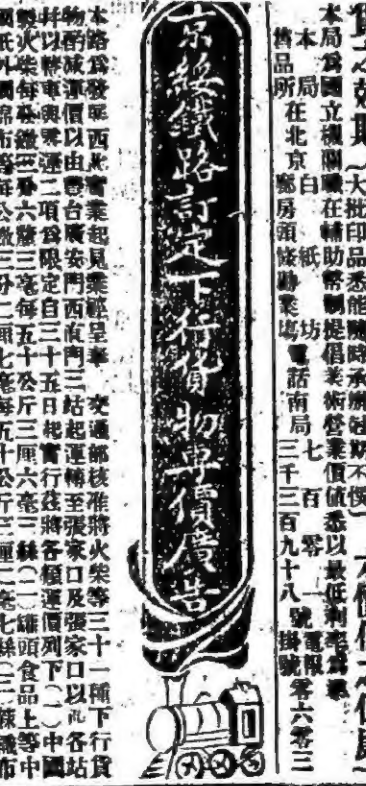 大批印品悉能隨時承辦尅期不悞
本局爲國立機關職在輔助幣制提倡美術營業價値悉以最低利率爲準
本局 白紙坊 七百零一號電報
售品所在北京廊房頭條勸業塲電話南局三千三百九十八掛號零六零三
京綏鐵路訂定下行貨物專價廣告
本路爲發華西北實業起見業經呈奉 交通部核准將火柴等三十一種下行貨
物酌减運價以由豐台廣安門西直門三站起運輸至張家口及張家口以西各站
幷以整車與零運二項爲限定自三十五日起實行茲將各種運價列下(一)中國
製火柴每公噸三分六釐三毫每五十公斤三厘六毫三絲(二)罐頭食品上等中
國紙外國綿布等每公噸三分二厘七毫每五十公斤三厘二毫七絲(三)